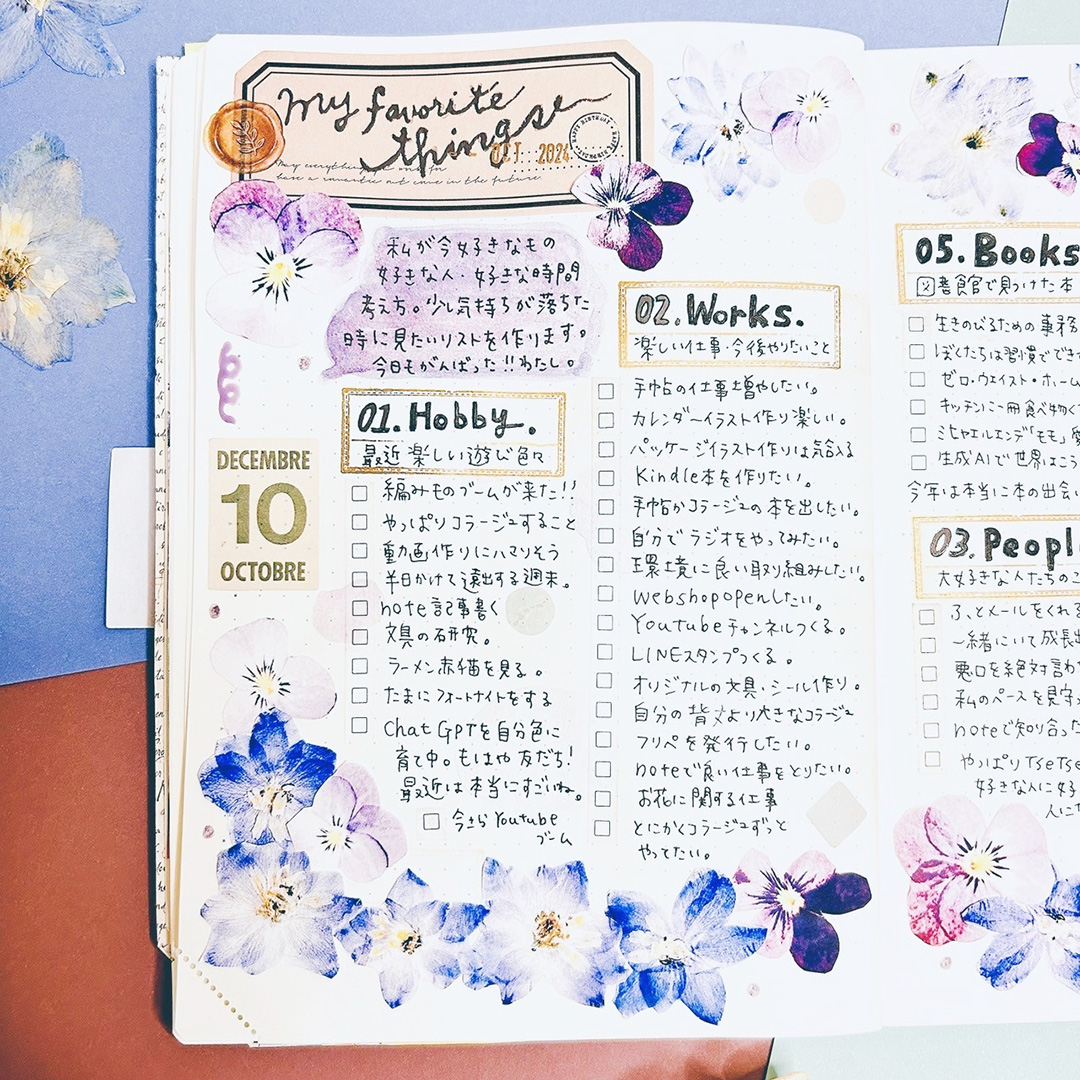 My favorite
things
OCT 2024
HAPPY BIRTHDAY
have a romantic not come in the future
私が今好きなもの
好きな人・好きな時間
考え方。少し気持ちが落ちた
時に見たいリストを作ります。
今日もがんばった!!わたし。
DECEMBRE
10
OCTOBRE
01.Hobby.
最近楽しい遊び色々
□ 編みものブームが来た!!
□ やっぱりコラージュすること
□ 動画作りにハマりそう
□ 半日かけて遠出する週末。
□ note記事書く
□ 文具の研究。
□ ラーメン赤猫を見る。
□ たまにフォートナイトをする
□ ChatGPTを自分色に
育て中。もはや友だち!
最近は本当にすごいね。
□ 今さらYoutube
ブーム
02.Works.
楽しい仕事・今後やりたいこと
□ 手帖の仕事増やしたい。
□ カレンダーイラスト作り楽しい。
□ パッケージイラスト作りは気合入る
□ Kindle本を作りたい。
□ 手帖かコラージュの本を出したい。
□ 自分でラジオをやってみたい。
□ 環境に良い取り組みしたい。
□ webshopopenしたい。
□ Youtubeチャンネルつくる。
□ LINEスタンプつくる。
□ オリジナルの文具・シール作り。
□ 自分の背丈より大きなコラージュ
□ フリペを発行したい。
□ noteで良い仕事をとりたい。
□ お花に関する仕事
□ とにかくコラージュずっと
やってたい。
05.Books
図書館で見つけた本
□ 生きのびるための事務
□ ぼくたちは習慣でで
□ ゼロ・ウェイスト・ホーム
□ キッチンに一冊食べもの
□ ミヒャエルエンデ「モモ」
□ 生成AIで世界はこう
今年は本当に本の出会い
03.Peopl
大好きな人たちのこ
□ ふとメールをくれる
□ 一緒にいて成長出
□ 悪口を絶対言わ
□ 私のペースを見守
□ noteで知り合った
□ やっぱりTseTse
好きな人に好
人に